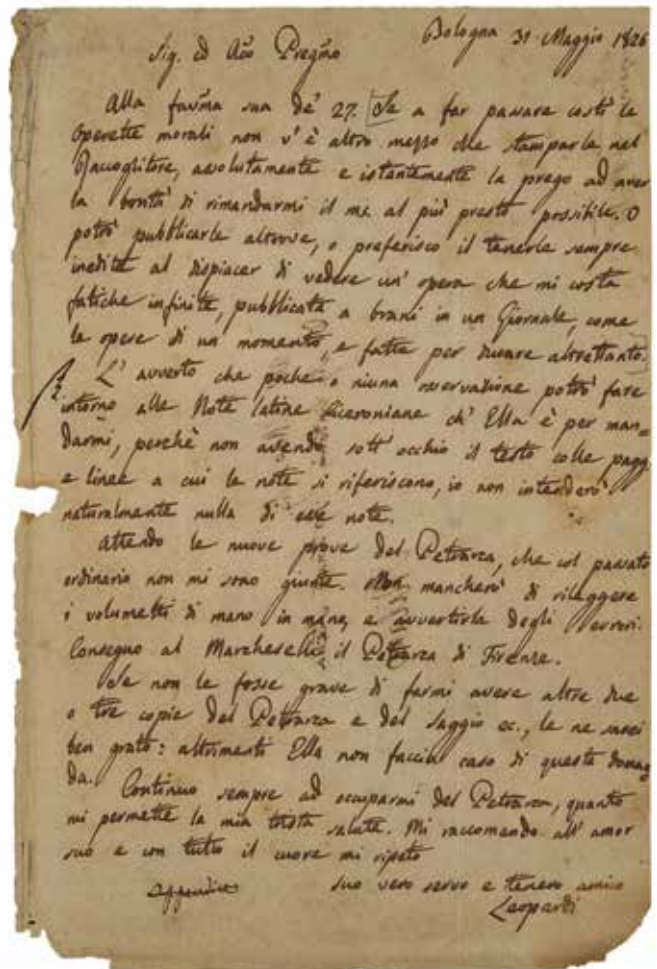 Bologna 31 Maggio 1826
Sig. ed Aco Pregmo
Alla favma sua de' 27. Se a far passare costì le
Operette morali non v'è altro mezzo che stamparle nel
Raccoglitore, assolutamente e istantemente la prego ad aver
la bontà di rimandarmi il ms. al più presto possibile. O
potrò pubblicarle altrove, o preferisco il tenerle sempre
inedite al dispiacer di vedere un'opera che mi costa
fatiche infinite, pubblicata a brani in un Giornale, come
le opere di un momento, e fatte per durare altrettanto.
L'avverto che poche o niuna osservazione potrò fare
intorno alle Note latine Ciceroniane ch'Ella è per man=
darmi, perchè non avendo sott'occhio il testo colle pagg.
e linee a cui le note si riferiscono, io non intenderò
naturalmente nulla di esse note.
Attendo le nuove prove del Petrarca, che col passato
ordinario non mi sono giunte. Non mancherò di rileggere
i volumetti di mano in mano, e avvertirla degli errori.
Consegno al Marcheselli il Petrarca di Firenze.
Se non le fosse grave di farmi avere altre due
o tre copie del Petrarca e del Saggio ec., le ne sarei
ben grato: altrimenti Ella non faccia caso di questa doman=
da. Continuo sempre ad occuparmi del Petrarca, quanto
mi permette la mia trista salute. Mi raccomando all'amor
suo e con tutto il cuore mi ripeto
suo vero servo e tenero amico
Leopardi